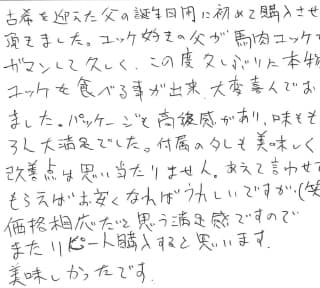 古希を迎えた父の誕生日用に初めて購入させ
頂きました。ユッケ好きの父が馬肉ユッケで
ガマンして久しく、この度久しぶりに本物
ユッケを食べる事が出来、大変喜んでお
ました。パッケージも高級感があり、味もも
ろん大満足でした。付属のタレも美味しく
改善点は思い当たりません。あえて言わせて
もらえばお安くなればうれしいですが、(笑
価格相応だと思う満足感ですので
またリピート購入すると思います。
美味しかったです。